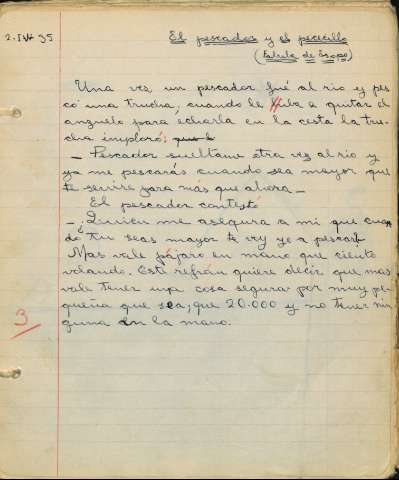 2-IV-35
El pescador y el pececillo
(Fabula de Esopo)
Una vez un pescador fué al rio y pes
có una trucha, cuando le iba a quitar el
anzuelo para echarla en la cesta la tru-
cha imploró:
— Pescador sueltame otra vez al rio y
ya me pescarás cuando sea mayor que
te serviré para mas que ahora —
El pescador contestó
— ¿Quien me asegura a mi que cuan
do tu seas mayor te voy yo a pescar?
Mas vale pájaro en mano que ciento
volando. Este refrán quiere decir que mas
vale tener una cosa segura por muy pe-
queña que sea, que 20.000 y no tener nin
guna en la mano.
3